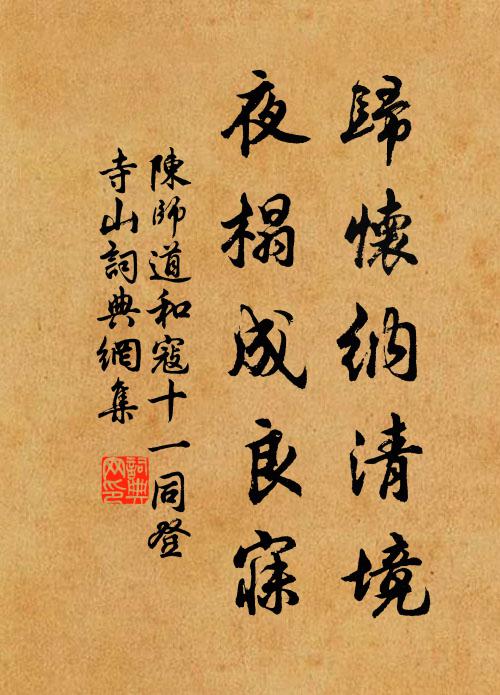 歸懷納清境
夜榻成良寐
陳師道和寇十一同登
寺山詞典網集
詞典
網印